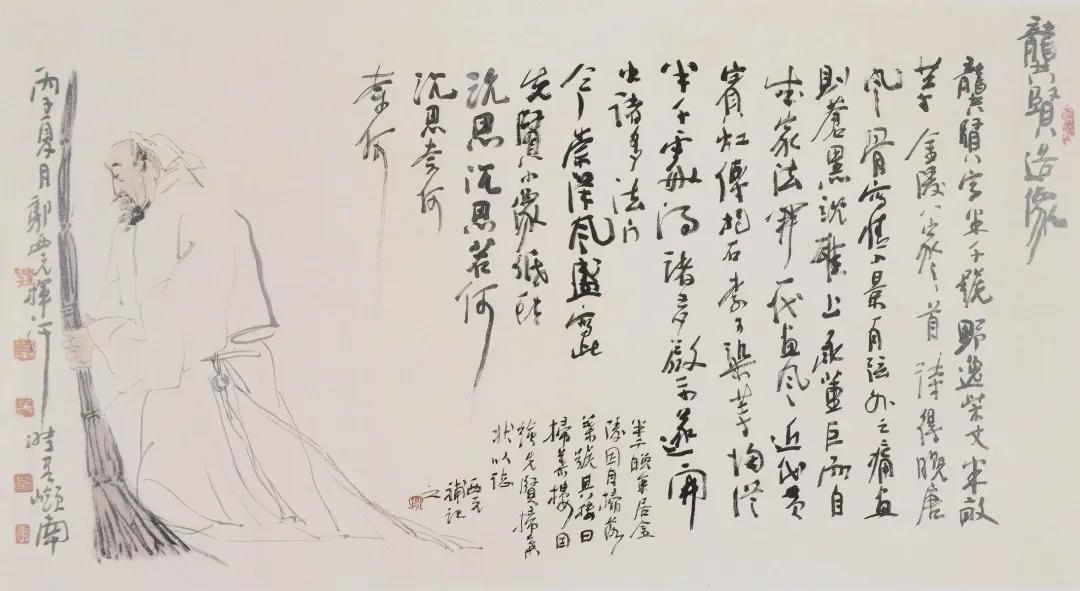 龔賢造像
龔賢字半千號野遺柴丈半畝
等金陵八家之首詩得晚唐
風骨寫情寫景有弦外之痛畫
則蒼黑沉雄上承董巨而自
成家法開一代畫風近代黃
賓虹傅抱石李可染等均從
半千處得諸多啟示並開
出諸多法門
今崇洋風盛寫此
先賢小像
沉思沉思若何
沉思奈何
奈何
半千晚年居金
陵因自掃落
葉號其樓曰
掃葉樓因
繪先賢掃葉
狀以誌
西元
補記
之
丙子夏月郭西元揮汗時居嶺南